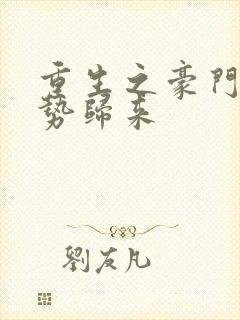 重生之豪門
勢歸来
劉友凡